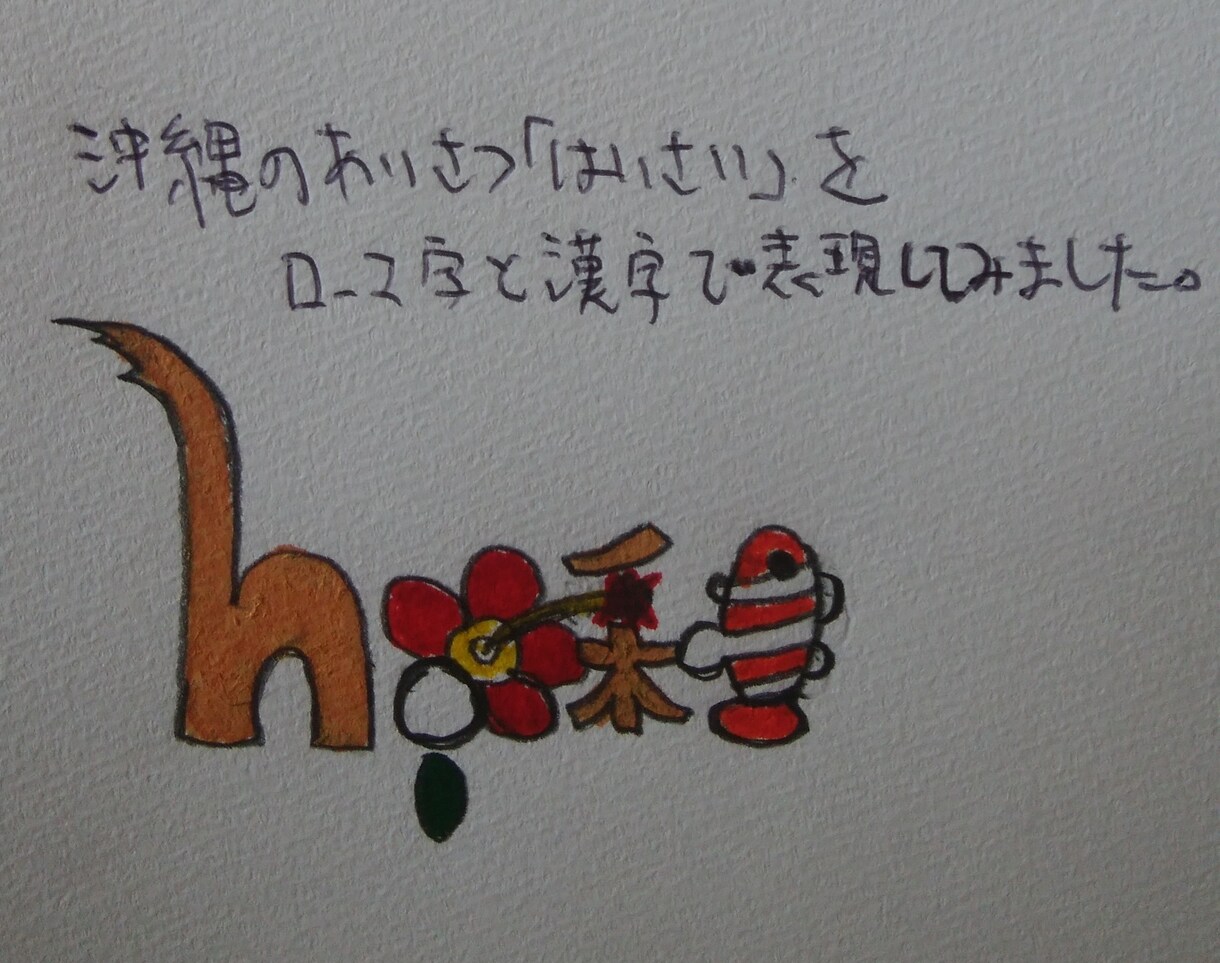 沖縄のあいさつ「はいさい」を
ローマ字と漢字で表現してみました。